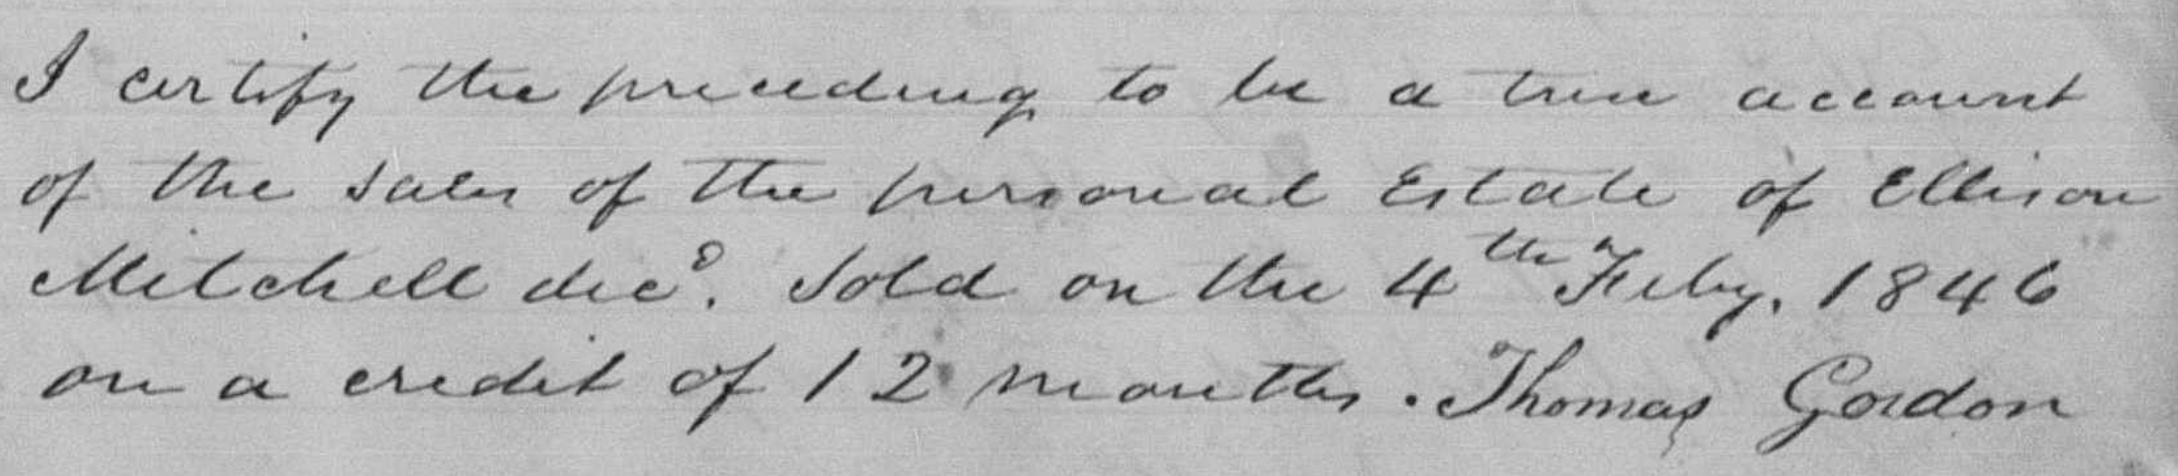 I certify the preceeding to be a true account
of the sales of the personal Estate of Ellison
Mitchell decd. Sold on the 4th Feby. 1846
on a credit of 12 months. Thomas Gordon